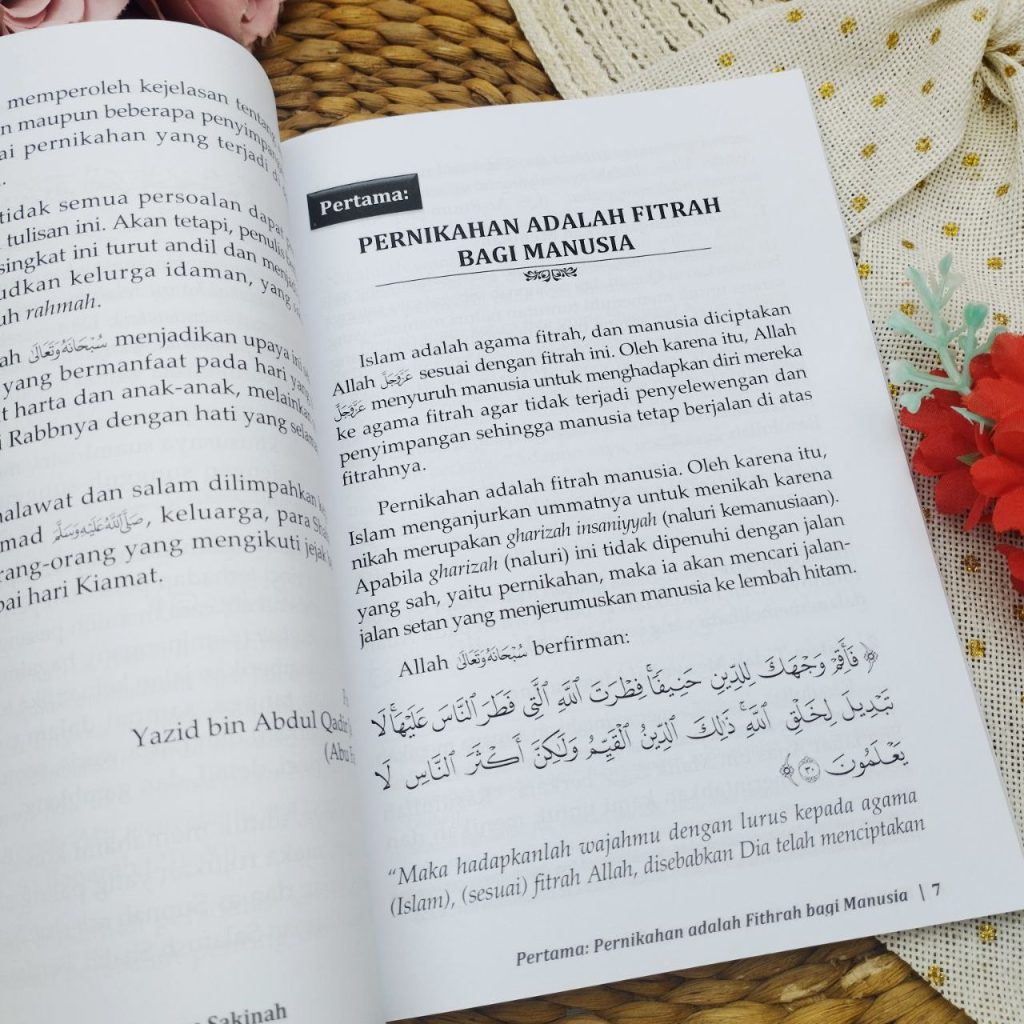 memperoleh kejelasan tentang
maupun beberapa penyimpan
pernikahan yang terjadi di
tidak semua persoalan dapat
tulisan ini. Akan tetapi, penulis
singkat ini turut andil dan
udkan kelurga idaman, yang
uh rahmah.
ah سُبْحَانَهُ وَتَعَالَى menjadikan upaya ini
yang bermanfaat pada hari yang
t harta dan anak-anak, melainkan
i Rabbnya dengan hati yang selamat
halawat dan salam dilimpahkan
mad صَلَّى اللهُ عَلَيْهِ وَسَلَّمَ, keluarga, para
rang-orang yang mengikuti jejak
pai hari Kiamat.
Yazid bin Abdul Qadir
(Abu
Sakinah
Pertama:
PERNIKAHAN ADALAH FITRAH
BAGI MANUSIA
Islam adalah agama fitrah, dan manusia diciptakan
Allah عَزَّوَجَلَّ sesuai dengan fitrah ini. Oleh karena itu, Allah
عَزَّوَجَلَّ menyuruh manusia untuk menghadapkan diri mereka
ke agama fitrah agar tidak terjadi penyelewengan dan
penyimpangan sehingga manusia tetap berjalan di atas
fitrahnya.
Pernikahan adalah fitrah manusia. Oleh karena itu,
Islam menganjurkan ummatnya untuk menikah karena
nikah merupakan gharizah insaniyyah (naluri kemanusiaan).
Apabila gharizah (naluri) ini tidak dipenuhi dengan jalan
yang sah, yaitu pernikahan, maka ia akan mencari jalan-
jalan setan yang menjerumuskan manusia ke lembah hitam.
Allah سُبْحَانَهُ وَتَعَالَى berfirman:
﴿ فَأَقِمْ وَجْهَكَ لِلدِّينِ حَنِيفًا ۚ فِطْرَتَ ٱللَّهِ ٱلَّتِي فَطَرَ ٱلنَّاسَ عَلَيْهَا ۚ لَا
تَبْدِيلَ لِخَلْقِ ٱللَّهِ ۚ ذَٰلِكَ ٱلدِّينُ ٱلْقَيِّمُ وَلَٰكِنَّ أَكْثَرَ ٱلنَّاسِ لَا
يَعْلَمُونَ ٣٠ ﴾
“Maka hadapkanlah wajahmu dengan lurus kepada agama
(Islam), (sesuai) fitrah Allah, disebabkan Dia telah menciptakan
Pertama: Pernikahan adalah Fithrah bagi Manusia | 7